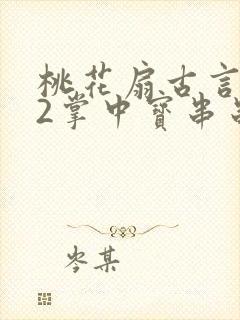 桃花扇古言
2掌中寳串
岑某